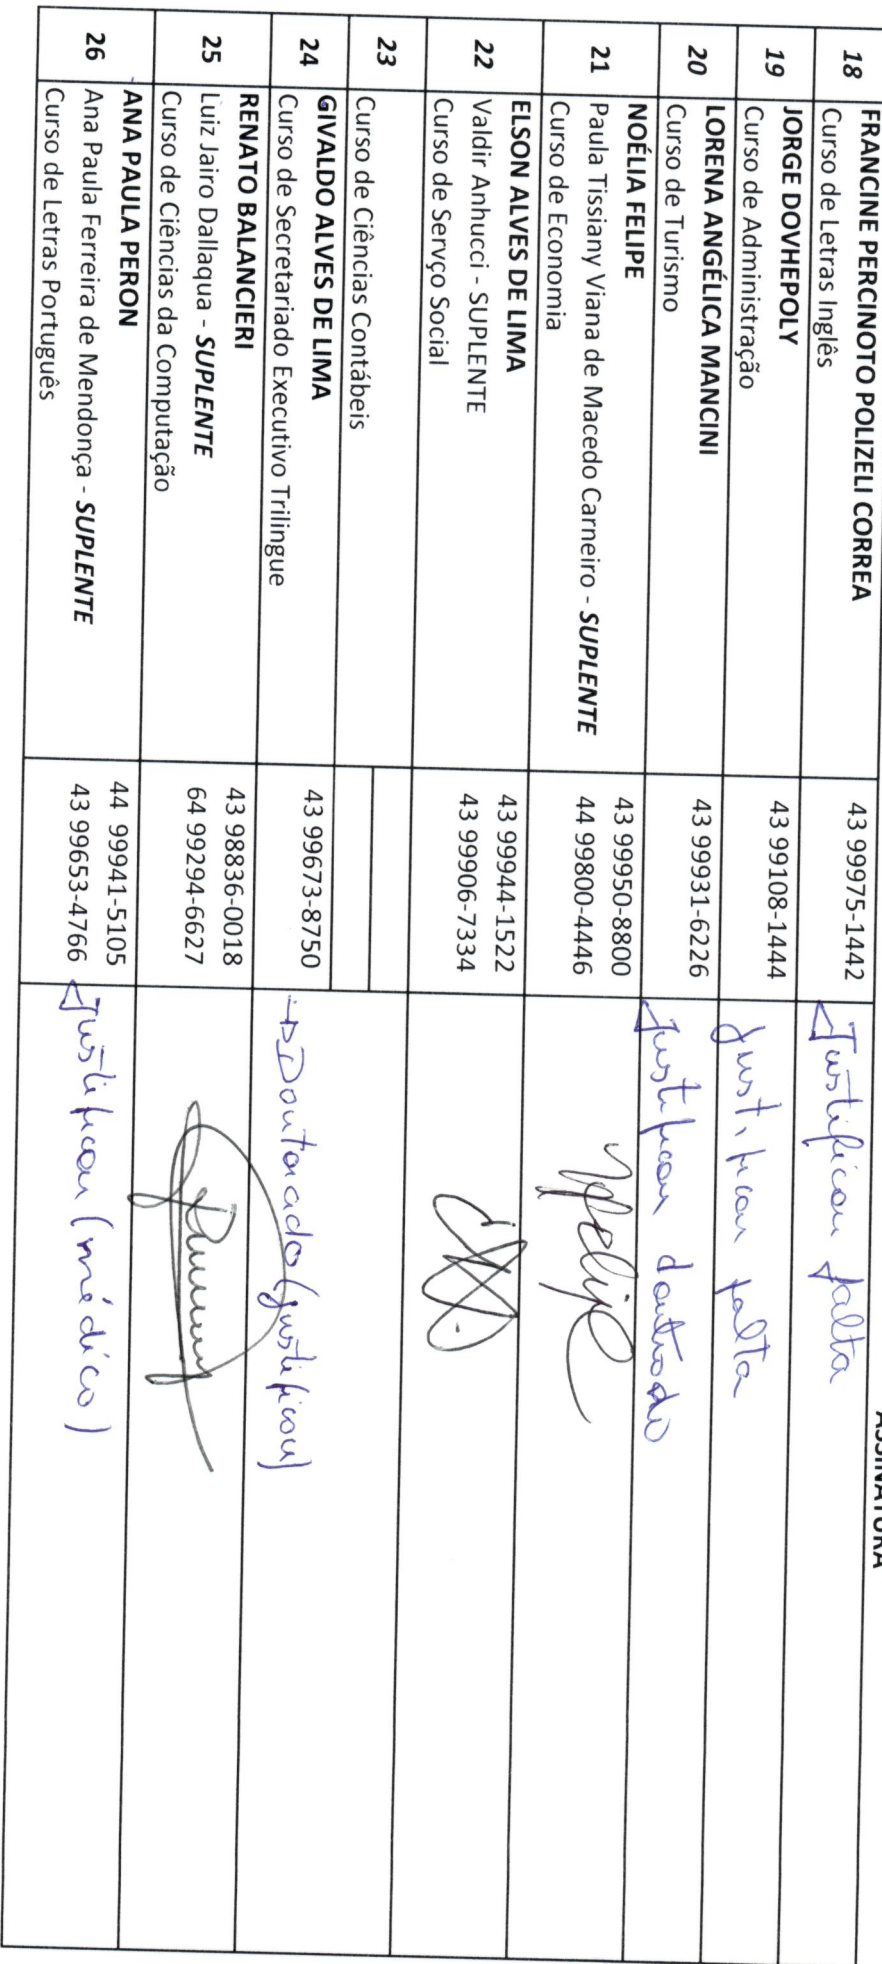 ASSINATURA
18
FRANCINE PERCINOTO POLIZELI CORREA
Curso de Letras Inglês
43 99975-1442
Justificou falta
19
JORGE DOVHEPOLY
Curso de Administração
43 99108-1444
Justificou falta
20
LORENA ANGÉLICA MANCINI
Curso de Turismo
43 99931-6226
Justificou doutorado
21
NOÉLIA FELIPE
Paula Tissiany Viana de Macedo Carneiro - SUPLENTE
Curso de Economia
43 99950-8800
44 99800-4446
22
ELSON ALVES DE LIMA
Valdir Anhucci - SUPLENTE
Curso de Servço Social
43 99944-1522
43 99906-7334
23
Curso de Ciências Contábeis
24
GIVALDO ALVES DE LIMA
Curso de Secretariado Executivo Trilingue
43 99673-8750
→ Doutorado (justificou)
25
RENATO BALANCIERI
Luiz Jairo Dallaqua - SUPLENTE
Curso de Ciências da Computação
43 98836-0018
64 99294-6627
26
ANA PAULA PERON
Ana Paula Ferreira de Mendonça - SUPLENTE
Curso de Letras Português
44 99941-5105
43 99653-4766
Justificou (médico)